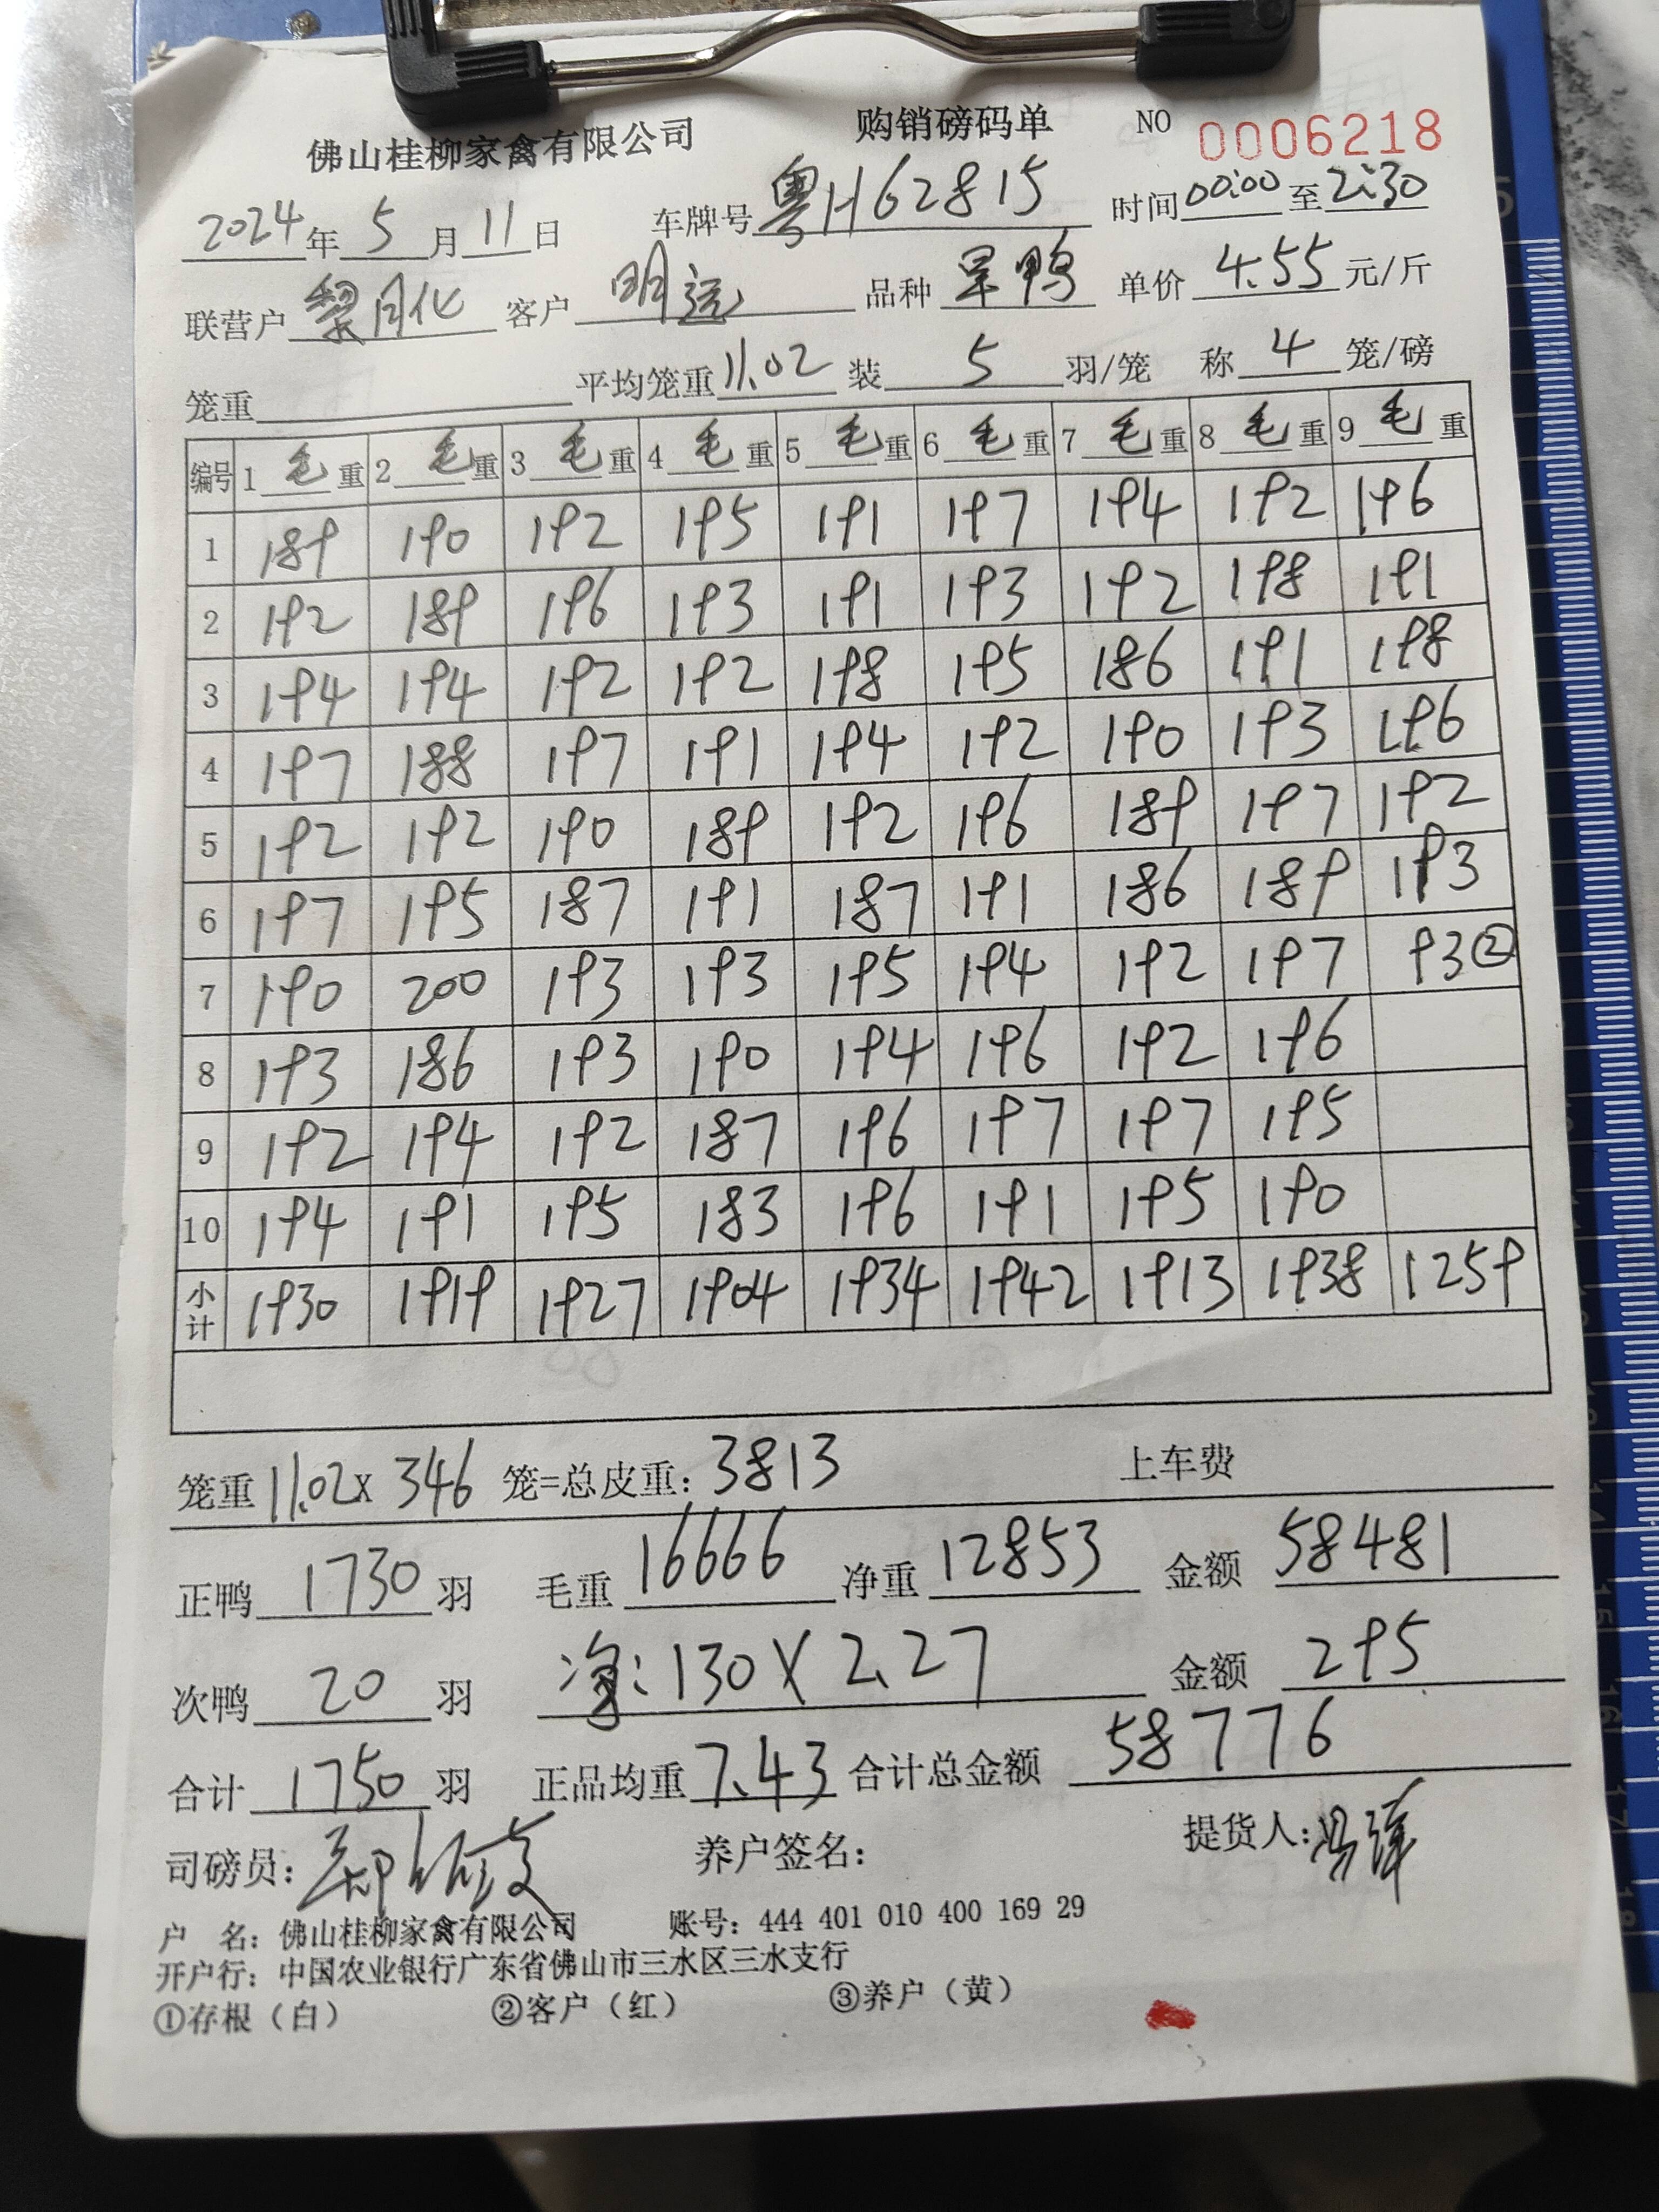 佛山桂柳家禽有限公司 购销磅码单 NO 0006218
2024年5月11日 车牌号粤H62815 时间00:00至2:30
联营户黎月化 客户明远 品种旱鸭 单价4.55元/斤
笼重 平均笼重11.02 装5羽/笼 称4笼/磅
编号 1毛重 2毛重 3毛重 4毛重 5毛重 6毛重 7毛重 8毛重 9毛重
1 189 190 192 195 191 197 194 192 196
2 192 189 196 193 191 193 192 198 191
3 194 194 192 192 198 195 186 191 198
4 197 188 197 191 194 192 190 193 196
5 192 192 190 189 192 196 189 197 192
6 197 195 187 191 187 191 186 189 193
7 190 200 193 193 195 194 192 197 93②
8 193 186 193 190 194 196 192 196
9 192 194 192 187 196 197 197 195
10 194 191 195 183 196 191 195 190
小计 1930 1919 1927 1904 1934 1942 1913 1938 1259
笼重11.02x346笼=总皮重:3813 上车费
正鸭1730羽 毛重16666 净重12853 金额58481
次鸭20羽 净:130X2.27 金额295
合计1750羽 正品均重7.43 合计总金额58776
司磅员: 养户签名: 提货人:
户 名:佛山桂柳家禽有限公司 账号:444 401 010 400 169 29
开户行:中国农业银行广东省佛山市三水区三水支行
①存根(白) ②客户(红) ③养户(黄)